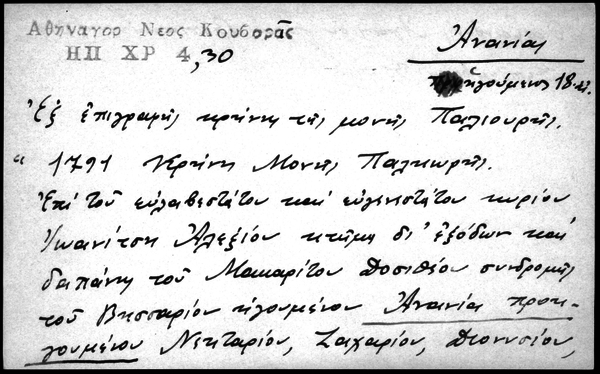 Αθηναγορ Νεος Κουβαρᾶς
ΗΠ ΧΡ 4,30
Ἀνανίας
ἡγούμενος 18 αἰ.
Ἐξ ἐπιγραφῆς κρήνης τῆς μονῆς Παλιουρῆς.
" 1791 Κρήνη Μονῆς Παλιουρῆς.
Ἐπί τοῦ εὐλαβεστάτου καί εὐγενεστάτου κυρίου
Ἰωανίτση Ἀλεξίου κτῆμα δι' ἐξόδων καί
δαπάνη τοῦ Μακαρίτου Δοσιθέου συνδρομῆς
τοῦ Βησσαρίου ἡγουμένου Ἀνανία προη-
γουμένου Νεκταρίου, Ζαχαρίου, Διονυσίου,